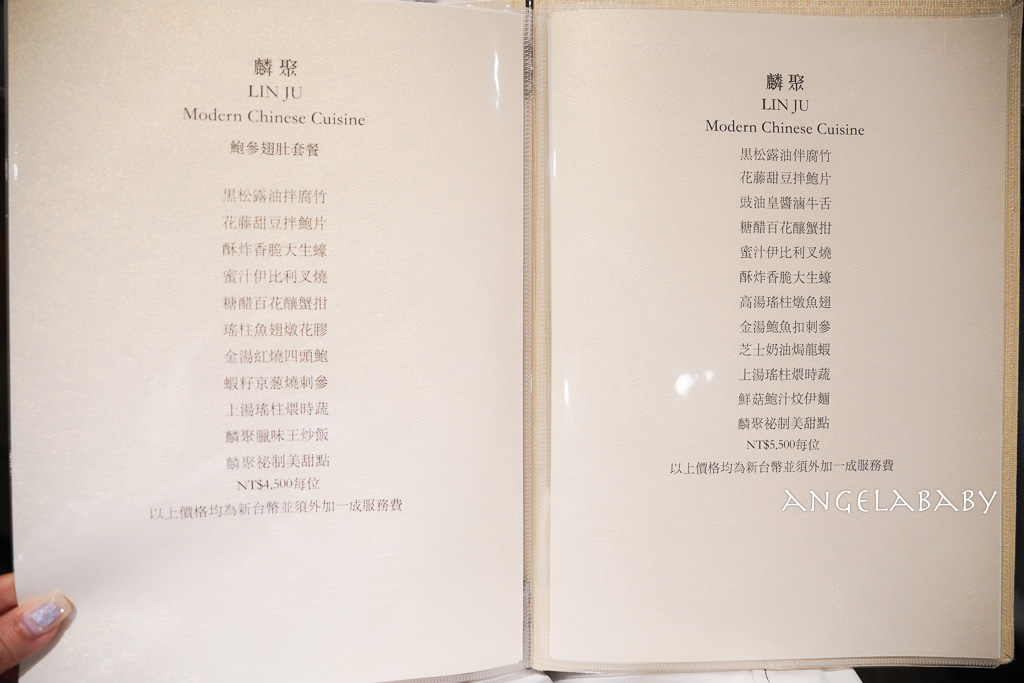 麟聚
LIN JU
Modern Chinese Cuisine
鮑參翅肚套餐
黑松露油拌腐竹
花藤甜豆拌鮑片
酥炸香脆大生蠔
蜜汁伊比利叉燒
糖醋百花釀蟹拑
瑤柱魚翅燉花膠
金湯紅燒四頭鮑
蝦籽京葱燒刺參
上湯瑤柱煨時蔬
麟聚臘味王炒飯
麟聚祕制美甜點
NT$4,500每位
以上價格均為新台幣並須外加一成服務費
麟聚
LIN JU
Modern Chinese Cuisine
黑松露油伴腐竹
花藤甜豆拌鮑片
豉油皇醬滷牛舌
糖醋百花釀蟹拑
蜜汁伊比利叉燒
酥炸香脆大生蠔
高湯瑤柱燉魚翅
金湯鮑魚扣刺參
芝士奶油焗龍蝦
上湯瑤柱煨時蔬
鮮菇鮑汁炆伊麵
麟聚祕制美甜點
NT$5,500每位
以上價格均為新台幣並須外加一成服務費
ANGELABABY